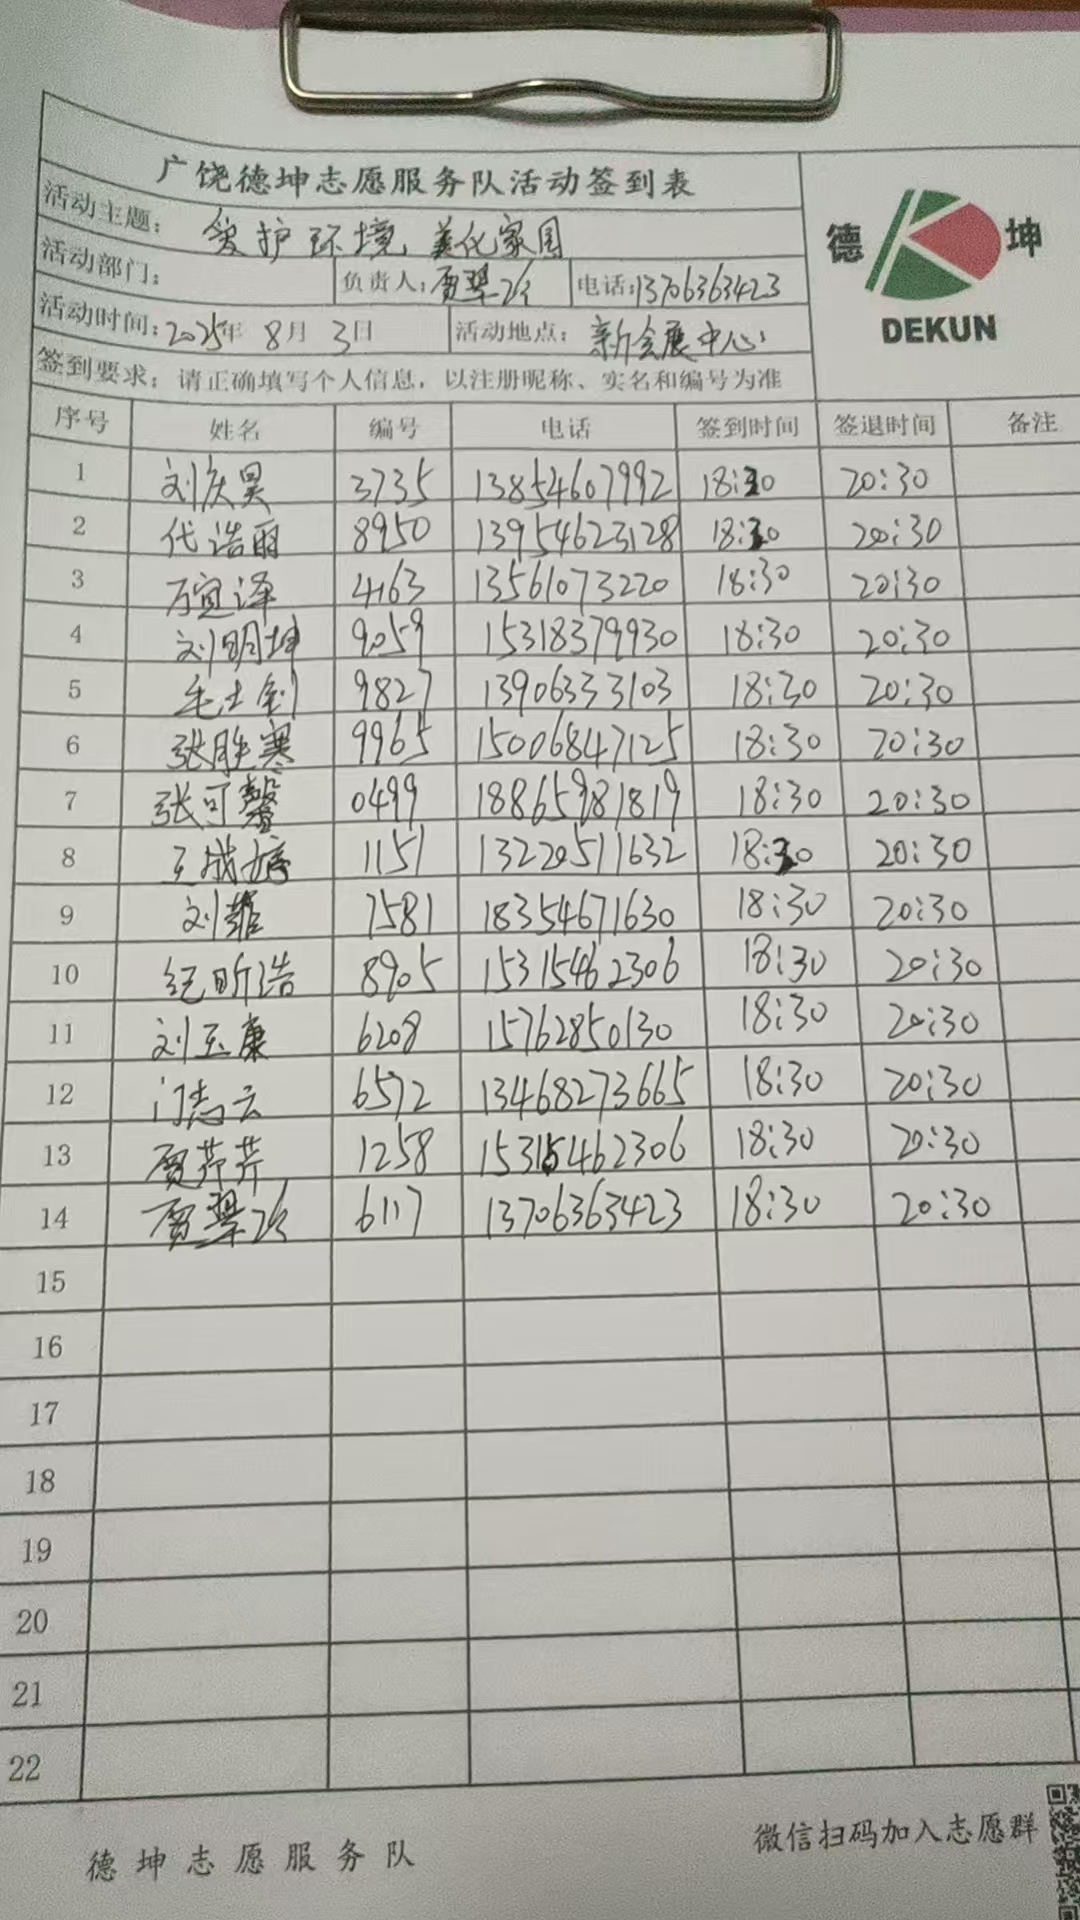 广饶德坤志愿服务队活动签到表
德 坤
DEKUN
活动主题: 爱护环境 美化家园
活动部门: 负责人: 贾翠 电话:13706363423
活动时间:2025年 8月 3日 活动地点: 新会展中心
签到要求: 请正确填写个人信息,以注册昵称、实名和编号为准
序号 姓名 编号 电话 签到时间 签退时间 备注
1 刘庆昊 3735 13854607992 18:30 20:30
2 代浩丽 8950 13954623128 18:30 20:30
3 万宜泽 4163 13561073220 18:30 20:30
4 刘明坤 9059 15318379930 18:30 20:30
5 毛士钊 9827 13906333103 18:30 20:30
6 张胜寒 9965 15006847125 18:30 20:30
7 张可馨 0499 18865981819 18:30 20:30
8 王成婷 1151 13220511632 18:30 20:30
9 刘 7581 18354671630 18:30 20:30
10 纪昕浩 8905 15315462306 18:30 20:30
11 刘玉康 6208 15762850130 18:30 20:30
12 门志云 6572 13468273665 18:30 20:30
13 贾芹芹 1258 15315462306 18:30 20:30
14 贾翠 6117 13706363423 18:30 20:30
15
16
17
18
19
20
21
22
德坤志愿服务队
微信扫码加入志愿群